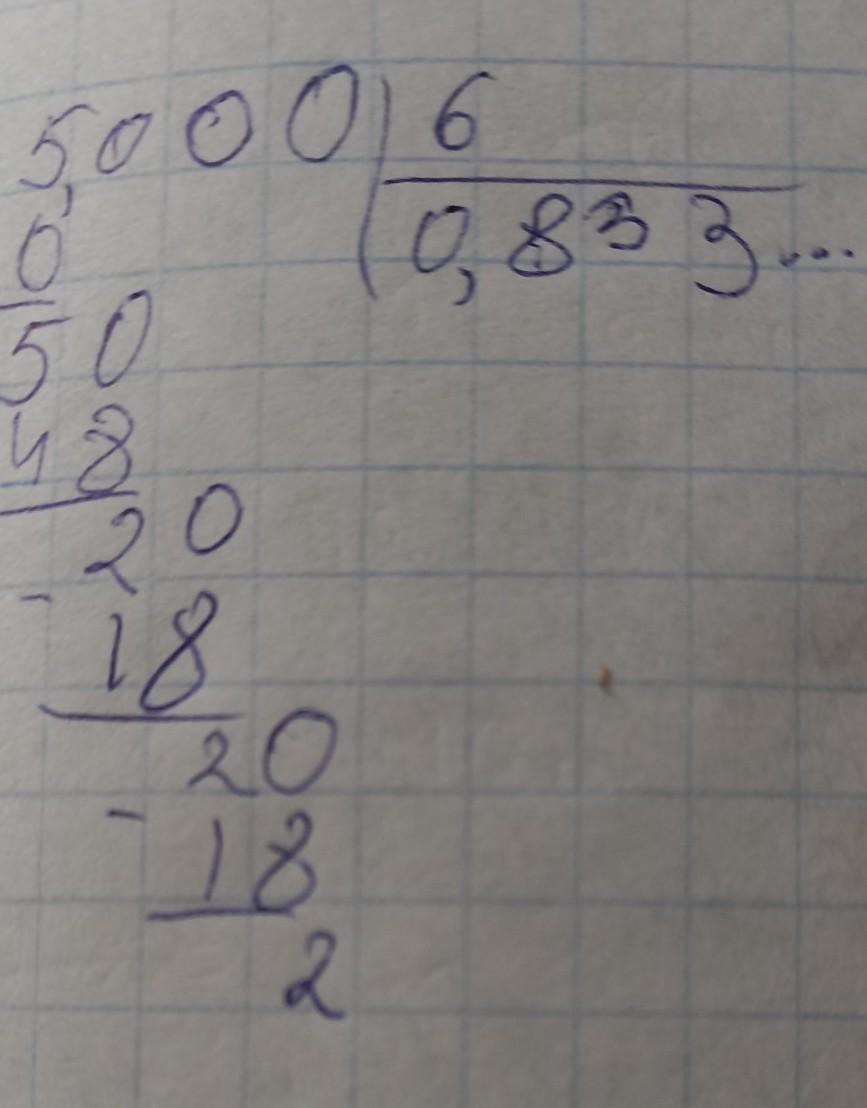 5,000 6
0 0,833...
50
48
20
- 18
20
- 18
2